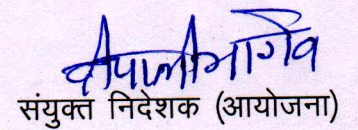 दीपाली भार्गव
संयुक्त निदेशक (आयोजना)